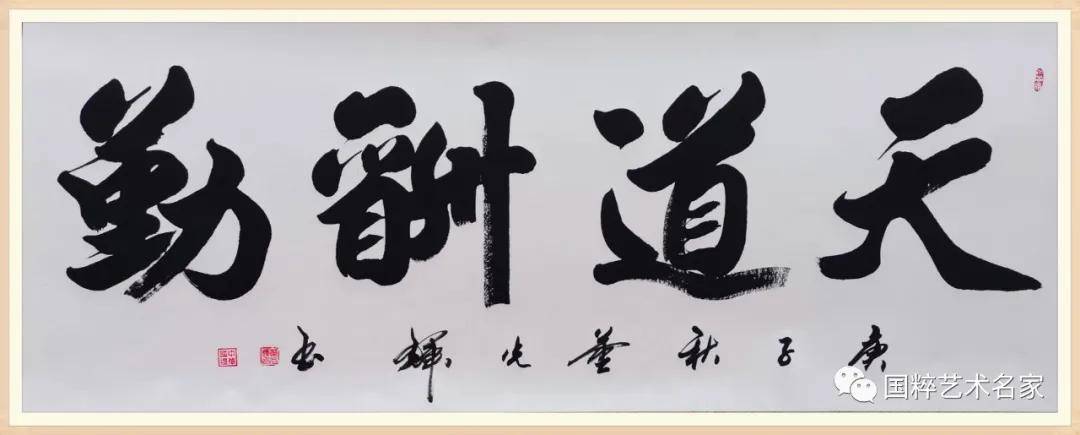 天道酬勤
庚子秋董光辉书
国粹艺术名家